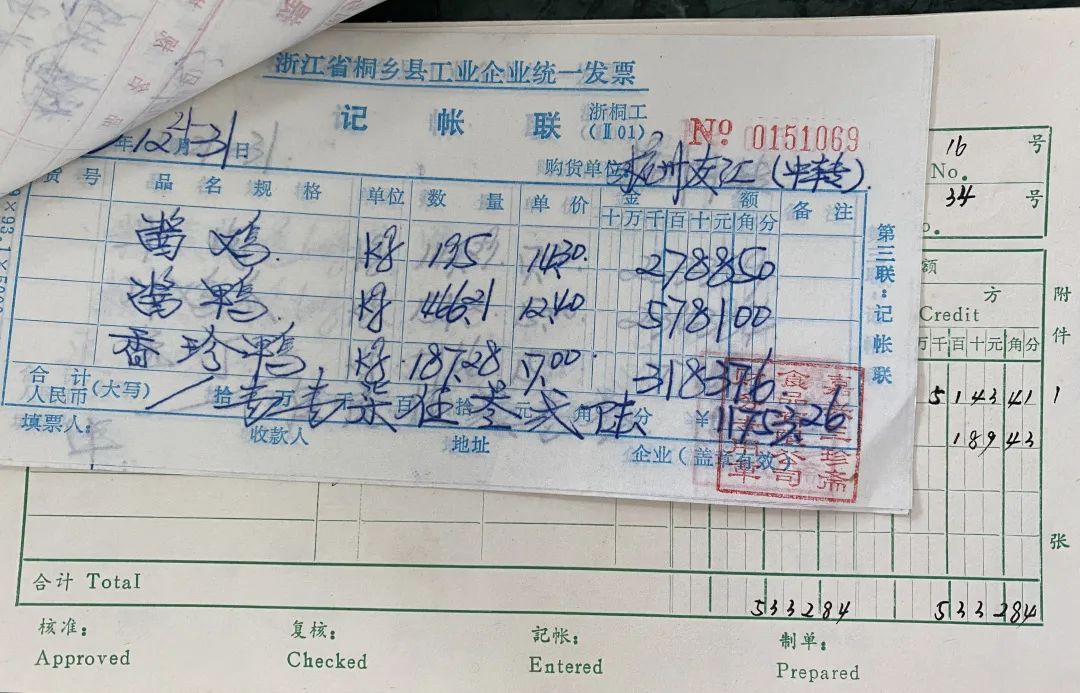 浙江省桐乡县工业企业统一发票
记帐联
浙桐工
(Ⅱ01)
№ 0151069
年12月31日
购货单位
货号 品名规格 单位 数量 单价 金额 备注
十万千百十元角分
酱鸡 Kg 195 14.30 2788 50
酱鸭 Kg 466.21 12.40 5781 00
香珍鸭 Kg 187.28 17.00 3183 76
合计
人民币(大写) 拾壹万壹千柒百伍拾叁元贰角陆分 ¥11753.26
填票人: 收款人 地址 企业(盖章有效)
第三联:记帐联
16 号
No.
34 号
额
方
Credit
万千百十元角分
5143 41
189 43
附件 1 张
合计 Total 5332 84 5332 84
核准: 复核: 記帐: 制单:
Approved Checked Entered Prepared